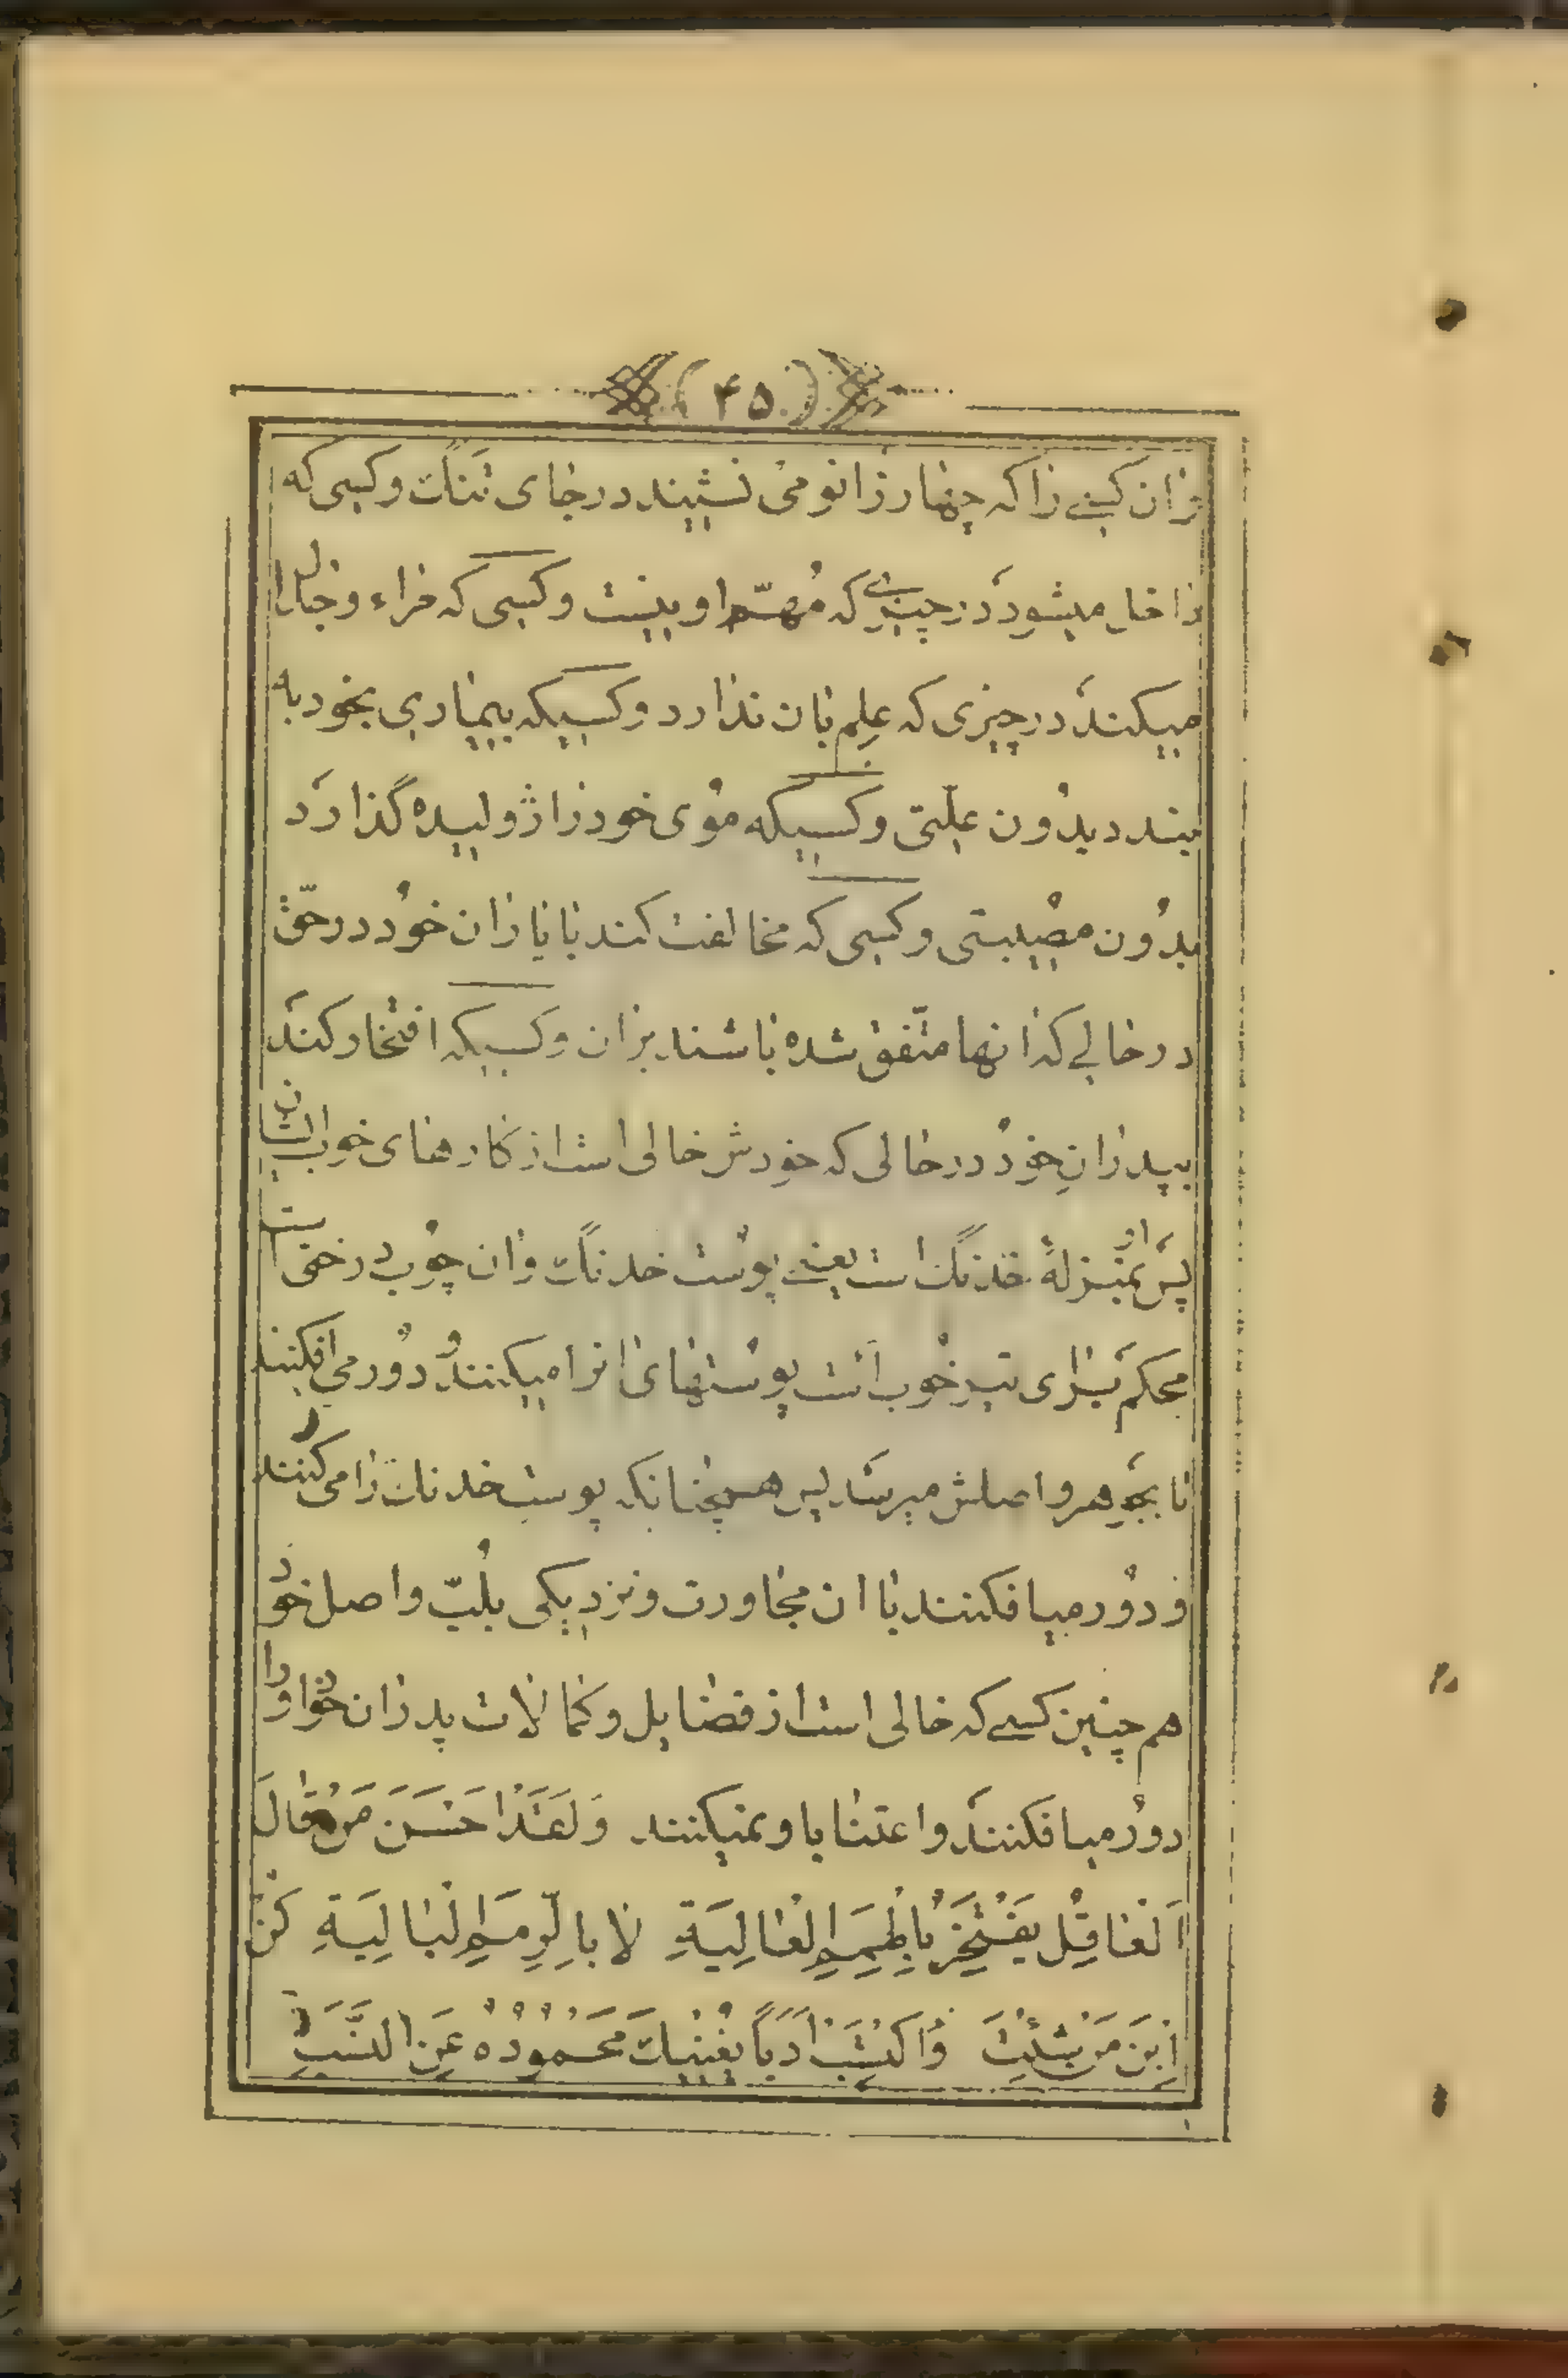 (۴۵)
بزان کسی را که چهار زانو می نشیند در جای تنگ و کسی که
داخل میشود در چیزی که مهمّ او نیست و کسی که مراء و جدال
میکند در چیزی که علم بان ندارد و کسیکه بیماری بخود به
بندد بدون علّتی و کسیکه موی خود را ژولیده گذارد
بدون مصیبتی و کسی که مخالفت کند با یاران خود در حقّ
در حالی که آنها متّفق شده باشند بران و کسیکه افتخار کند
به پدرانِ خود در حالی که خودش خالی است از کارهای خوب ایشان
پس او بمنزلهٔ خدنگ است یعنی پوست خدنگ و آن چوب درختی است
محکم برای تیر خوب است پوستهای انرا میکنند و دور می افکنند
تا بجوهر و اصلش میرسد پس همچنانکه پوست خدنگ را می کنند
و دور میافکنند با ان مجاورت و نزدیکی بلُبّ و اصل خود
هم چنین کسی که خالی است از فضایل و کمالات پدران خود او را
دور میافکنند و اعتنا باو نمیکنند وَ لَقَدْ اَحْسَنَ مَنْ قالَ
اَلْعاقِلُ یَفْتَخِرُ بِالْهِمَمِ الْعالِیَةِ لا بِالرِّمَمِ الْبالِیَةِ کُنْ
اِبْنَ مَنْ شِئْتَ وَ اکْتَسِبْ اَدَباً یُغْنِیکَ مَحْمُودُهُ عَنِ النَّسَبِ